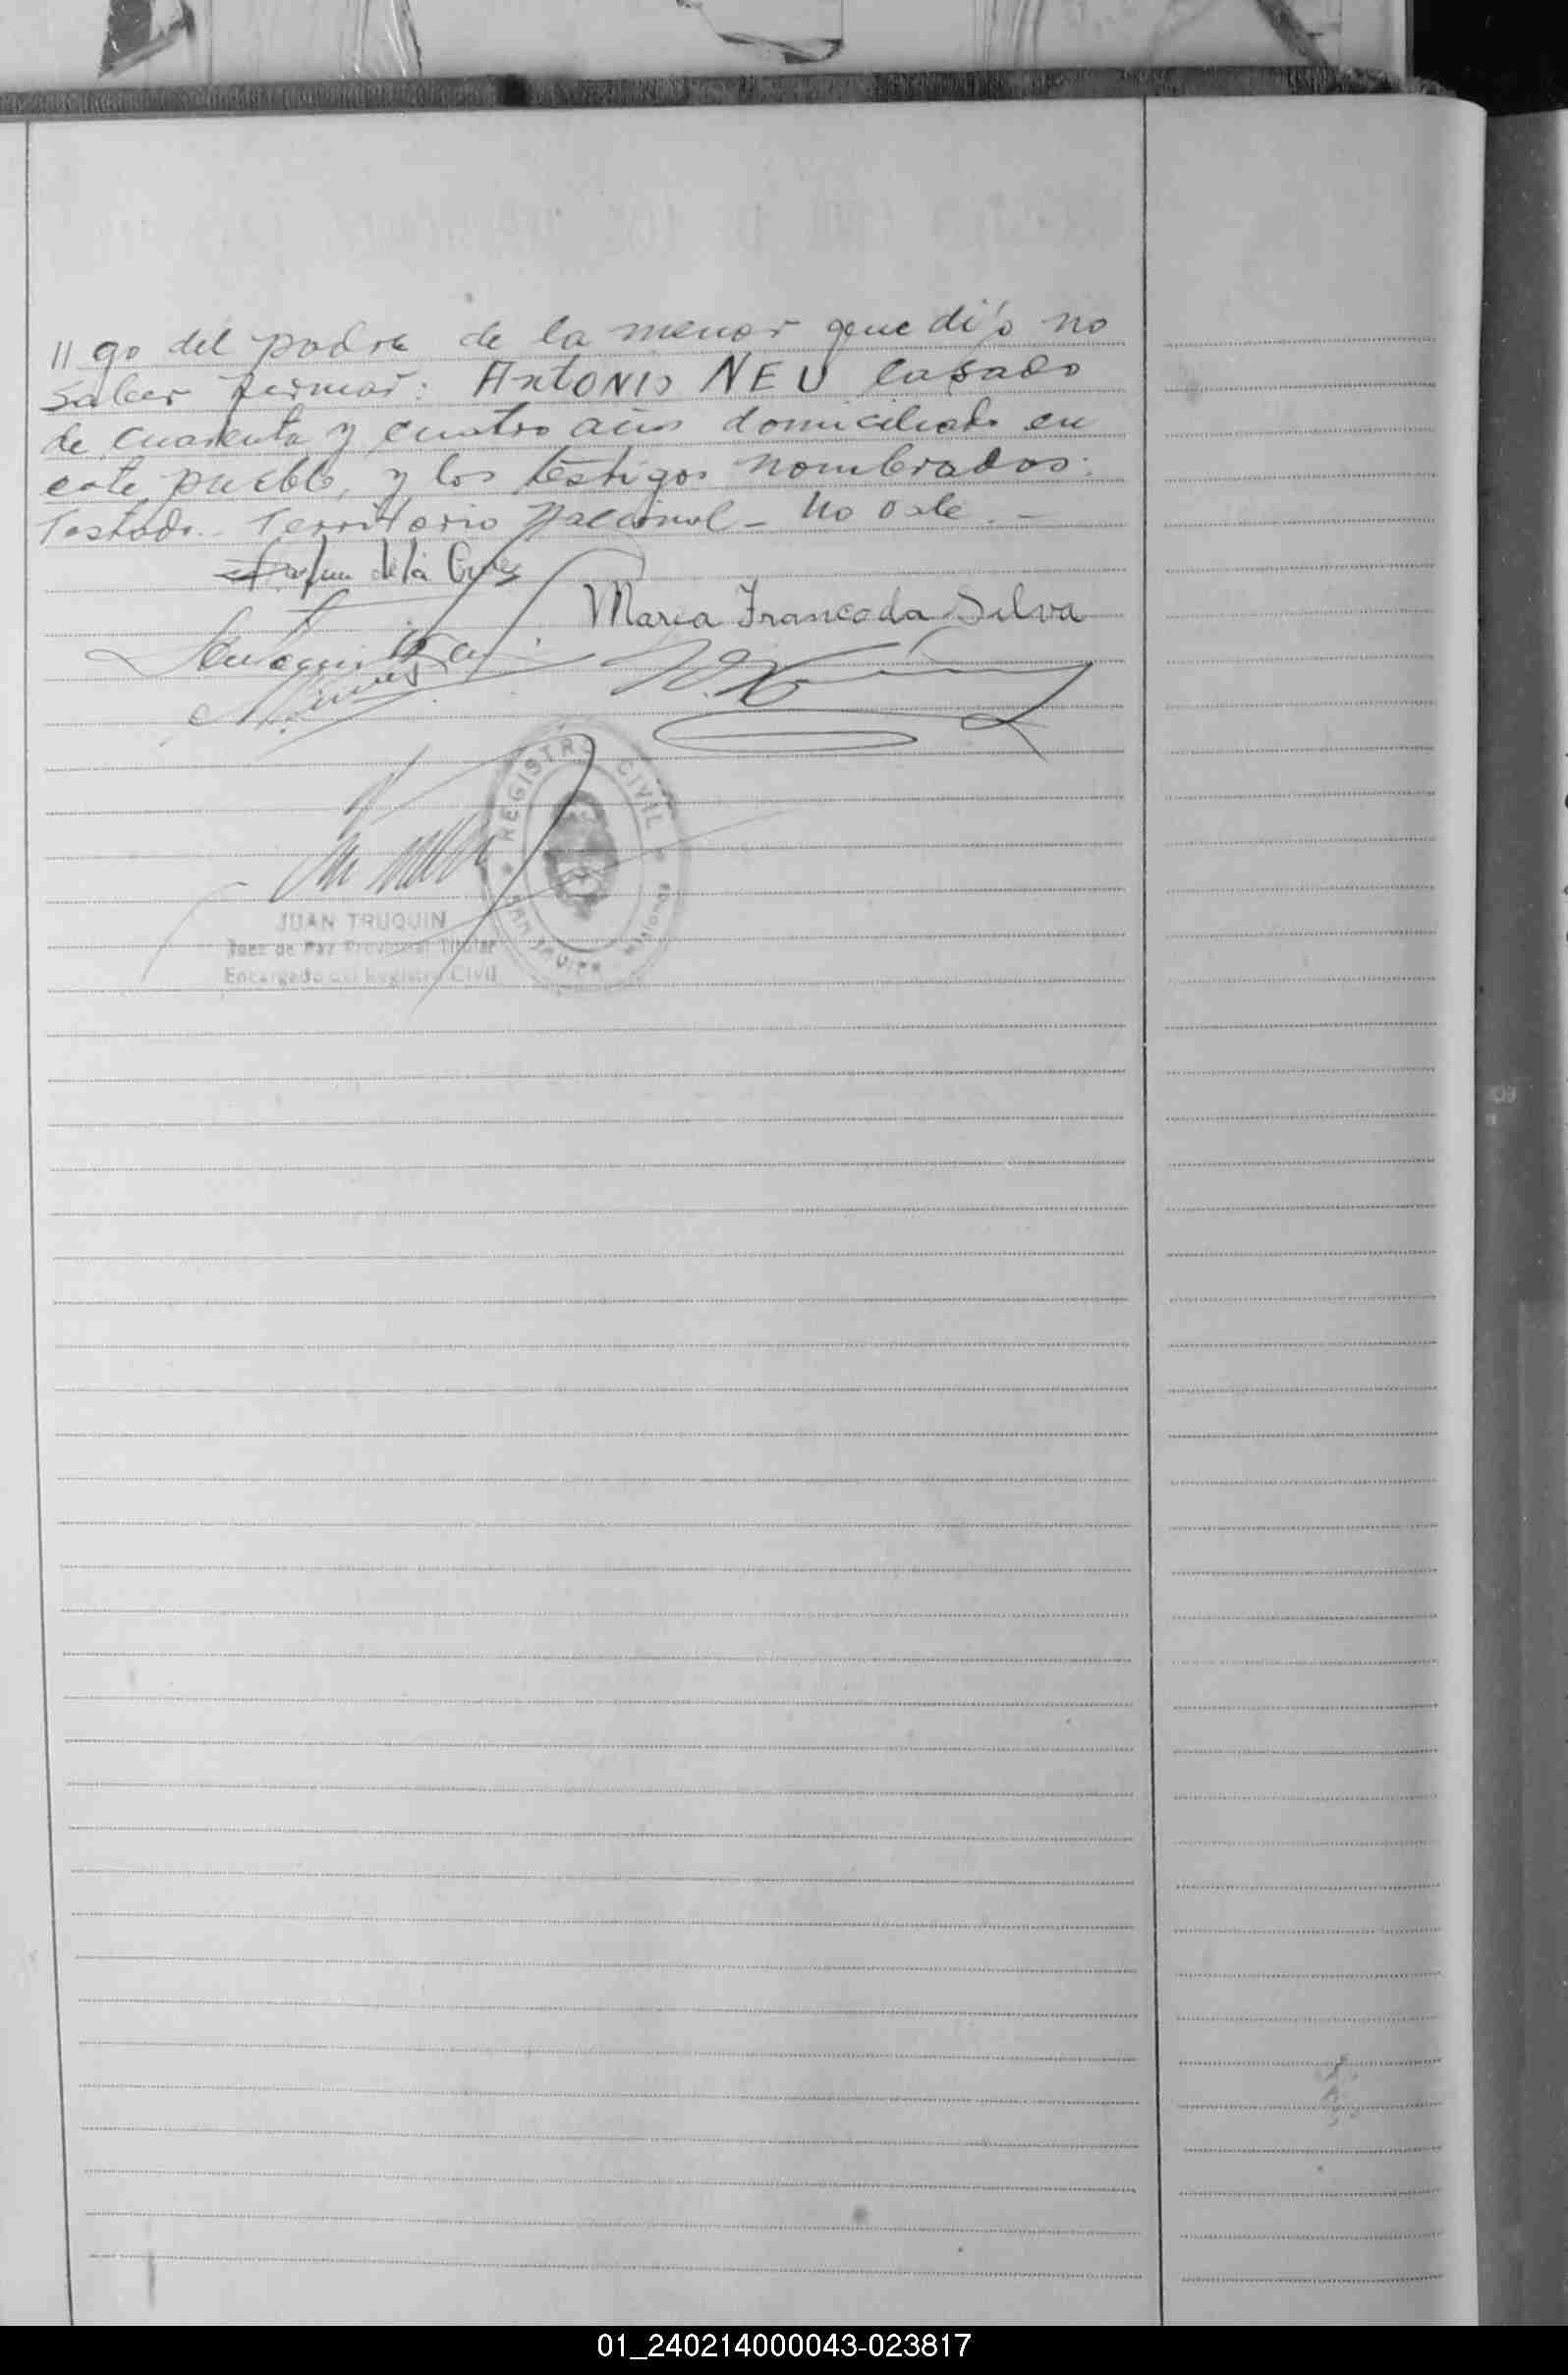 // go del padre de la menor que dijo no
saber firmar: ANTONIO NEU casado
de cuarenta y cuatro años domiciliado en
este pueblo, y los testigos nombrados.
Testado. Territorio Nacional - no vale. -
de la Cruz
Maria Franco da Silva
REGISTRO CIVIL
SAN JAVIER Misiones
JUAN TRUQUIN
Juez de Paz Provisional Titular
Encargado del Registro Civil
01_240214000043-023817